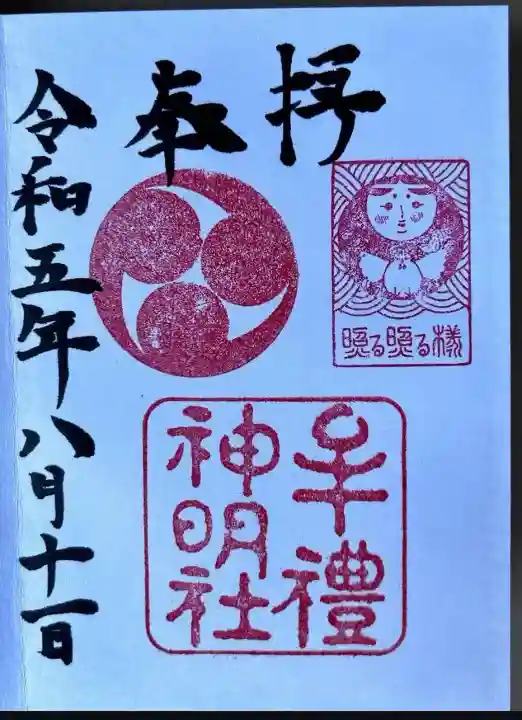 奉拝
照る照る様
牟禮
神明社
令和五年八月十一日